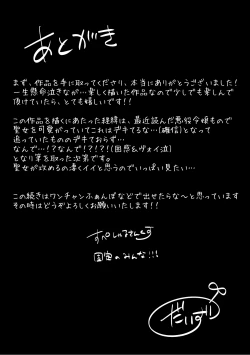 あとがき
まず、作品を手に取ってくださり、本当にありがとうございました!
一生懸命泣きながら…楽しく描いた作品なので少しでも楽しんで
頂けていたら、とても嬉しいです!!
この作品を描いた経緯は、最近読んだ悪役令嬢もので
聖女を可愛がっていてこれはデキてるな…(確信)となって
追っていたもののデキておらず、
なんで…!?なんで!?!?(困惑&ヴォイ泣)
となり筆を取った次第です。
聖女が攻めの凄くイイと思うのでいっぱい見たい…
この続きはワンチャンふぁんぼなどで出せたらな~と思っています
その時はどうぞよろしくお願いいたします!!
すぺしゃるてんくす
国宙のみんな!!!
だいず